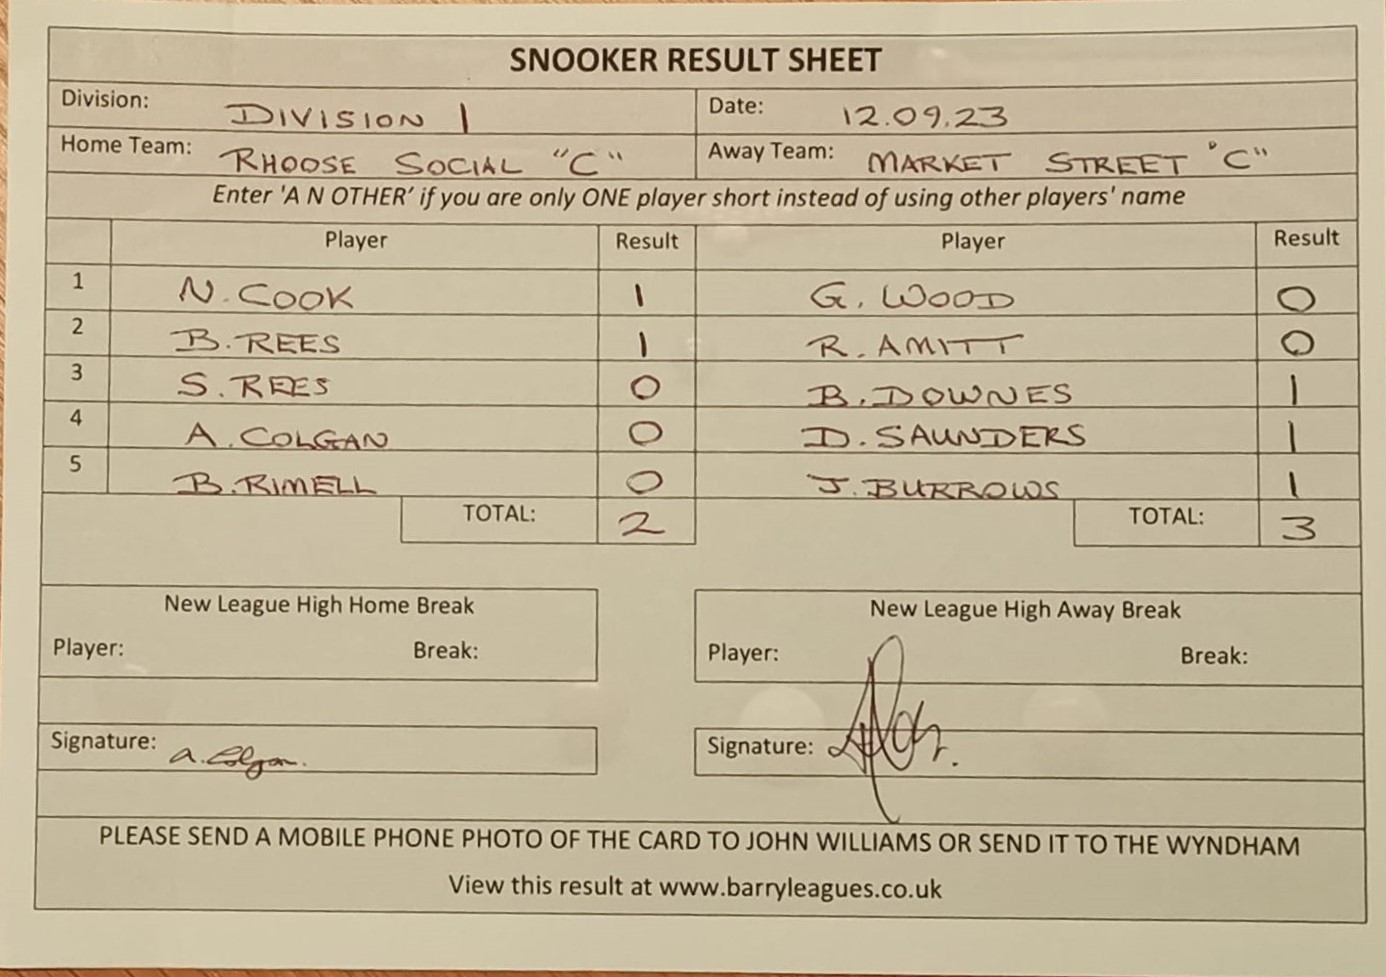 SNOOKER RESULT SHEET
Division: DIVISION 1 Date: 12.09.23
Home Team: RHOOSE SOCIAL "C" Away Team: MARKET STREET "C"
Enter 'A N OTHER' if you are only ONE player short instead of using other players' name
Player Result Player Result
1 N. COOK 1 G. WOOD 0
2 B. REES 1 R. AMITT 0
3 S. REES 0 B. DOWNES 1
4 A. COLGAN 0 D. SAUNDERS 1
5 B. RIMELL 0 J. BURROWS 1
TOTAL: 2 TOTAL: 3
New League High Home Break New League High Away Break
Player: Break: Player: Break:
Signature: a. Colgan. Signature:
PLEASE SEND A MOBILE PHONE PHOTO OF THE CARD TO JOHN WILLIAMS OR SEND IT TO THE WYNDHAM
View this result at www.barryleagues.co.uk